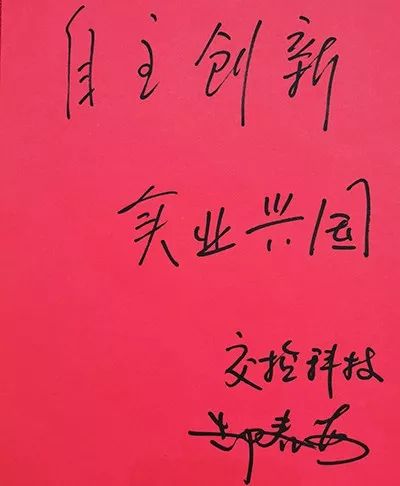 自主创新
实业兴国
交控科技
郜春海